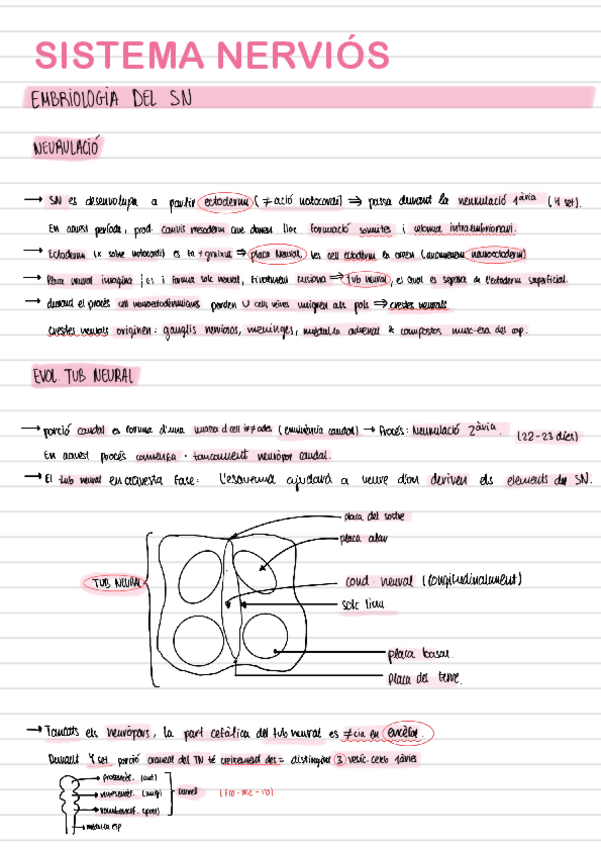 SISTEMA NERVIÓS
EMBRIOLOGIA DEL SN
NEURULACIÓ
→ SN es desenvolupa a partir ectoderm (≠ació notocordi) ⇒ passa durant la neurulació 1ària (4 set).
En aquest període, prod. canvis mesoderm que donen lloc formació somites i celoma intraembrionari.
→ Ectoderm (x sobre notocordi) es fa +gruixut ⇒ placa neural, les cèl ectoderm la creen (anomenem neuroectoderm)
→ Placa neural invagina i es i forma solc neural, finalment fusiona ⇒ tub neural, el qual es separa de l'ectoderm superficial.
→ durant el procés cell neuroectodèrmiques perden U cells veïnes migren als pols ⇒ crestes neurals
crestes neurals originen: ganglis nerviosos, meninges, medul·la adrenal & compostos musc-esq del cap.
EVOL. TUB NEURAL
→ porció caudal es forma d'una massa d cell in≠ades (eminència caudal) → Procés: Neurulació 2ària. (22-23 dies)
En aquest procés comença · tancament neuròpor caudal.
→ El tub neural en aquesta fase: L'esquema ajudarà a veure d'on deriven els elements del SN.
placa del sostre
placa alar
TUB NEURAL
cond. neural (longitudinalment)
solc limit
placa basal.
placa del terra.
→ Tancats els neuròpors, la part cefàlica del tub neural es ≠cia en encèfal.
Durant 4 set porció cranial del TN té creixement des= distingint 3 vesíc. cereb 1àries
prosencèf. (ant)
mesencèf. (mitj)
cervell
(PRO-ME-RO)
rombencef. (post)
→ medul·la esp